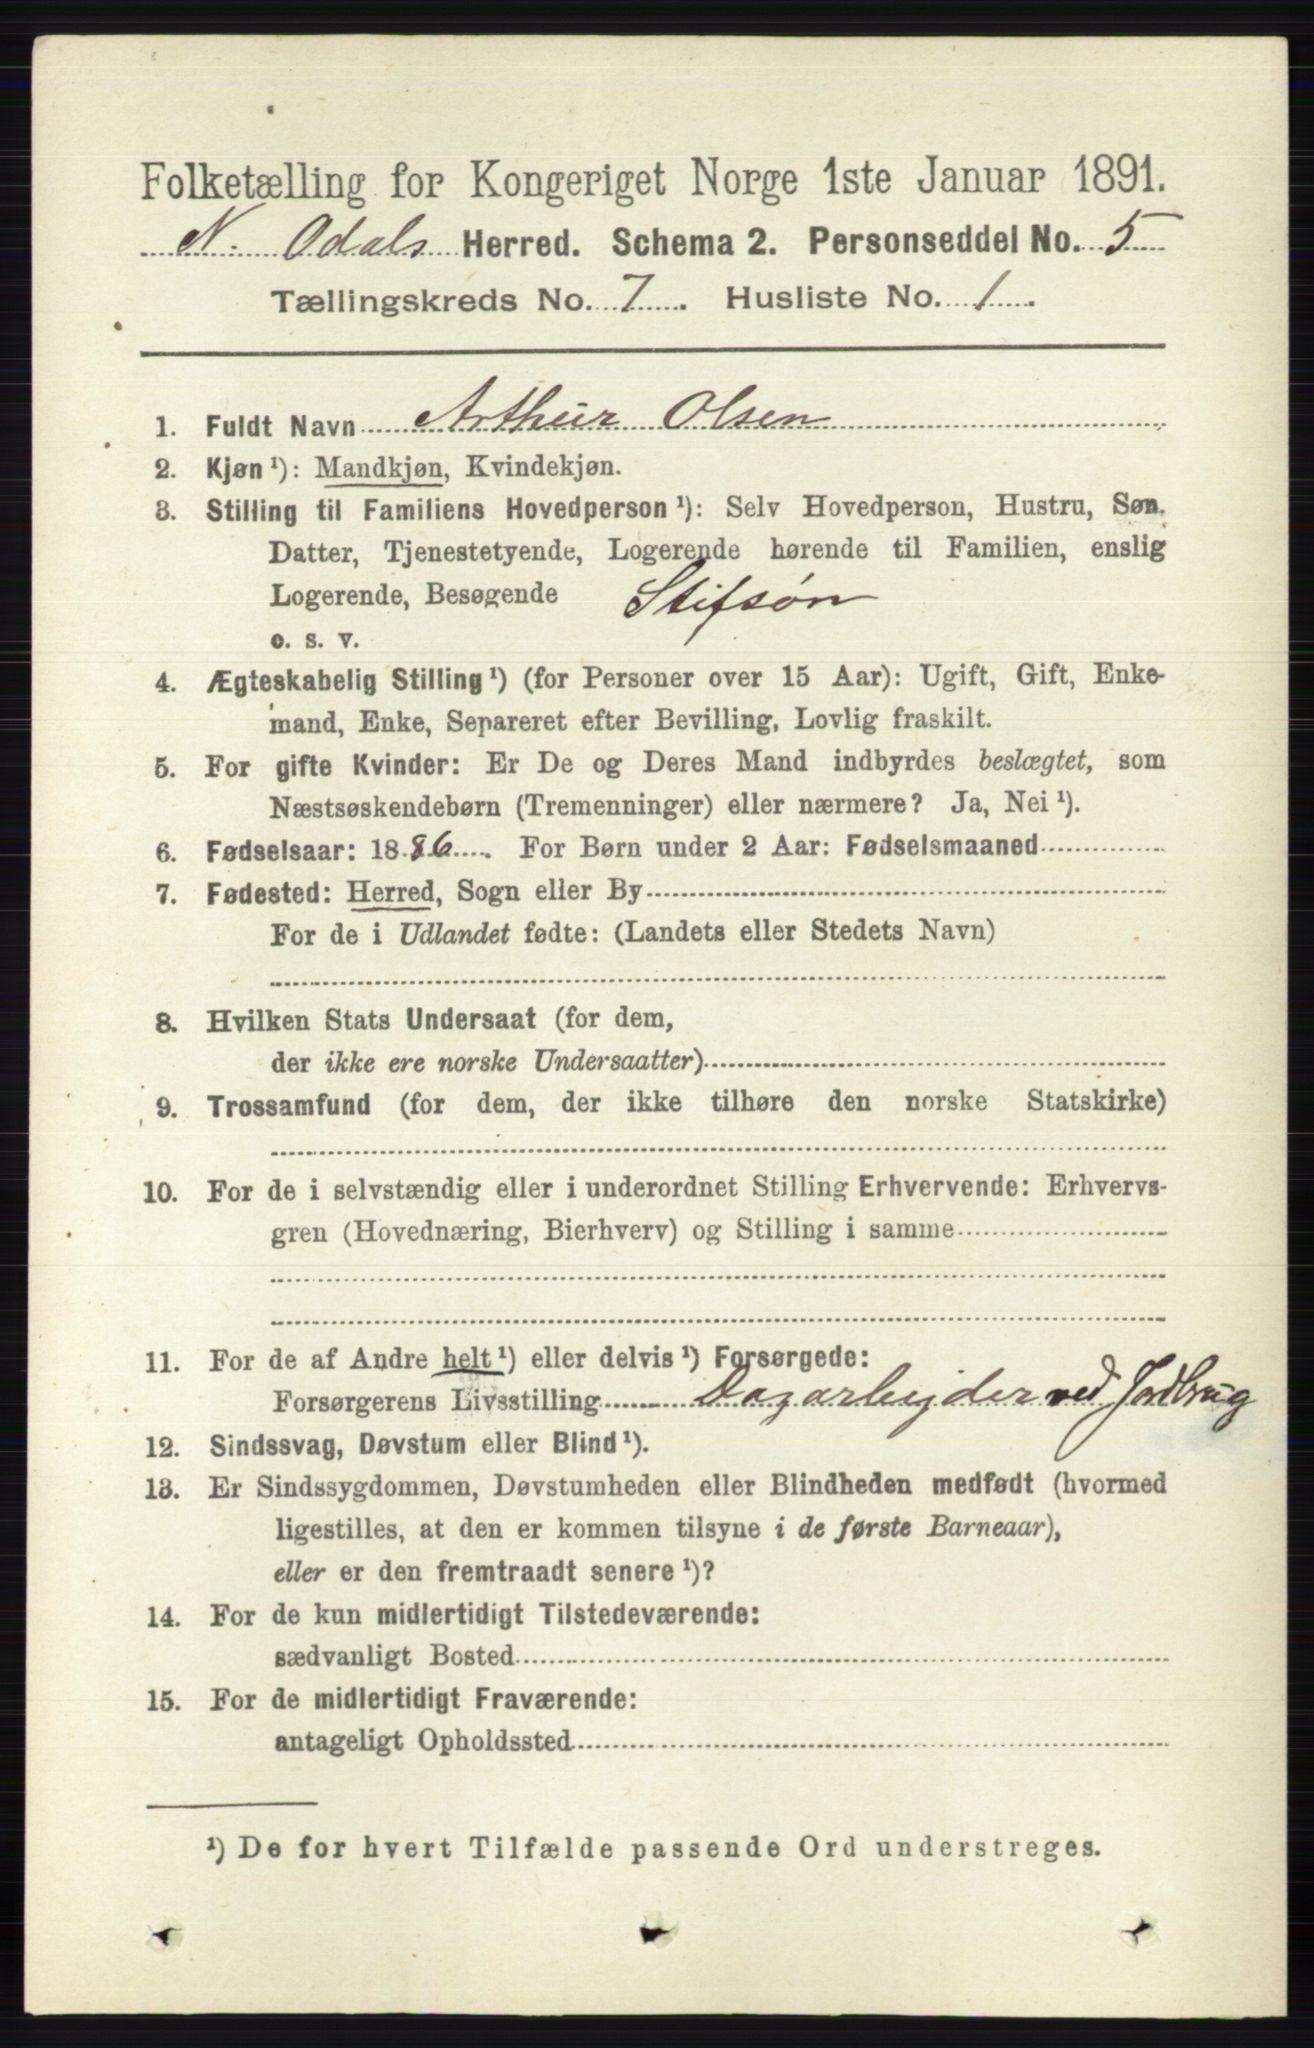 Folketælling for Kongeriget Norge 1ste Januar 1891.
N. Odals Herred. Schema 2. Personseddel No. 5
Tællingskreds No. 7. Husliste No. 1.
1. Fuldt Navn Arthur Olsen
2. Kjøn ¹): Mandkjøn, Kvindekjøn.
3. Stilling til Familiens Hovedperson ¹): Selv Hovedperson, Hustru, Søn,
Datter, Tjenestetyende, Logerende hørende til Familien, enslig
Logerende, Besøgende Stifsøn
o. s. v.
4. Ægteskabelig Stilling ¹) (for Personer over 15 Aar): Ugift, Gift, Enke-
mand, Enke, Separeret efter Bevilling, Lovlig fraskilt.
5. For gifte Kvinder: Er De og Deres Mand indbyrdes beslægtet, som
Næstsøskendebørn (Tremenninger) eller nærmere? Ja, Nei ¹).
6. Fødselsaar: 1886. For Børn under 2 Aar: Fødselsmaaned
7. Fødested: Herred, Sogn eller By
For de i Udlandet fødte: (Landets eller Stedets Navn)
8. Hvilken Stats Undersaat (for dem,
der ikke ere norske Undersaatter)
9. Trossamfund (for dem, der ikke tilhøre den norske Statskirke)
10. For de i selvstændig eller i underordnet Stilling Erhvervende: Erhvervs-
gren (Hovednæring, Bierhverv) og Stilling i samme
11. For de af Andre helt ¹) eller delvis ¹) Forsørgede:
Forsørgerens Livsstilling Dagarbejder ved Jordbrug
12. Sindssvag, Døvstum eller Blind ¹).
13. Er Sindssygdommen, Døvstumheden eller Blindheden medfødt (hvormed
ligestilles, at den er kommen tilsyne i de første Barneaar),
eller er den fremtraadt senere ¹)?
14. For de kun midlertidigt Tilstedeværende:
sædvanligt Bosted
15. For de midlertidigt Fraværende:
antageligt Opholdssted
¹) De for hvert Tilfælde passende Ord understreges.